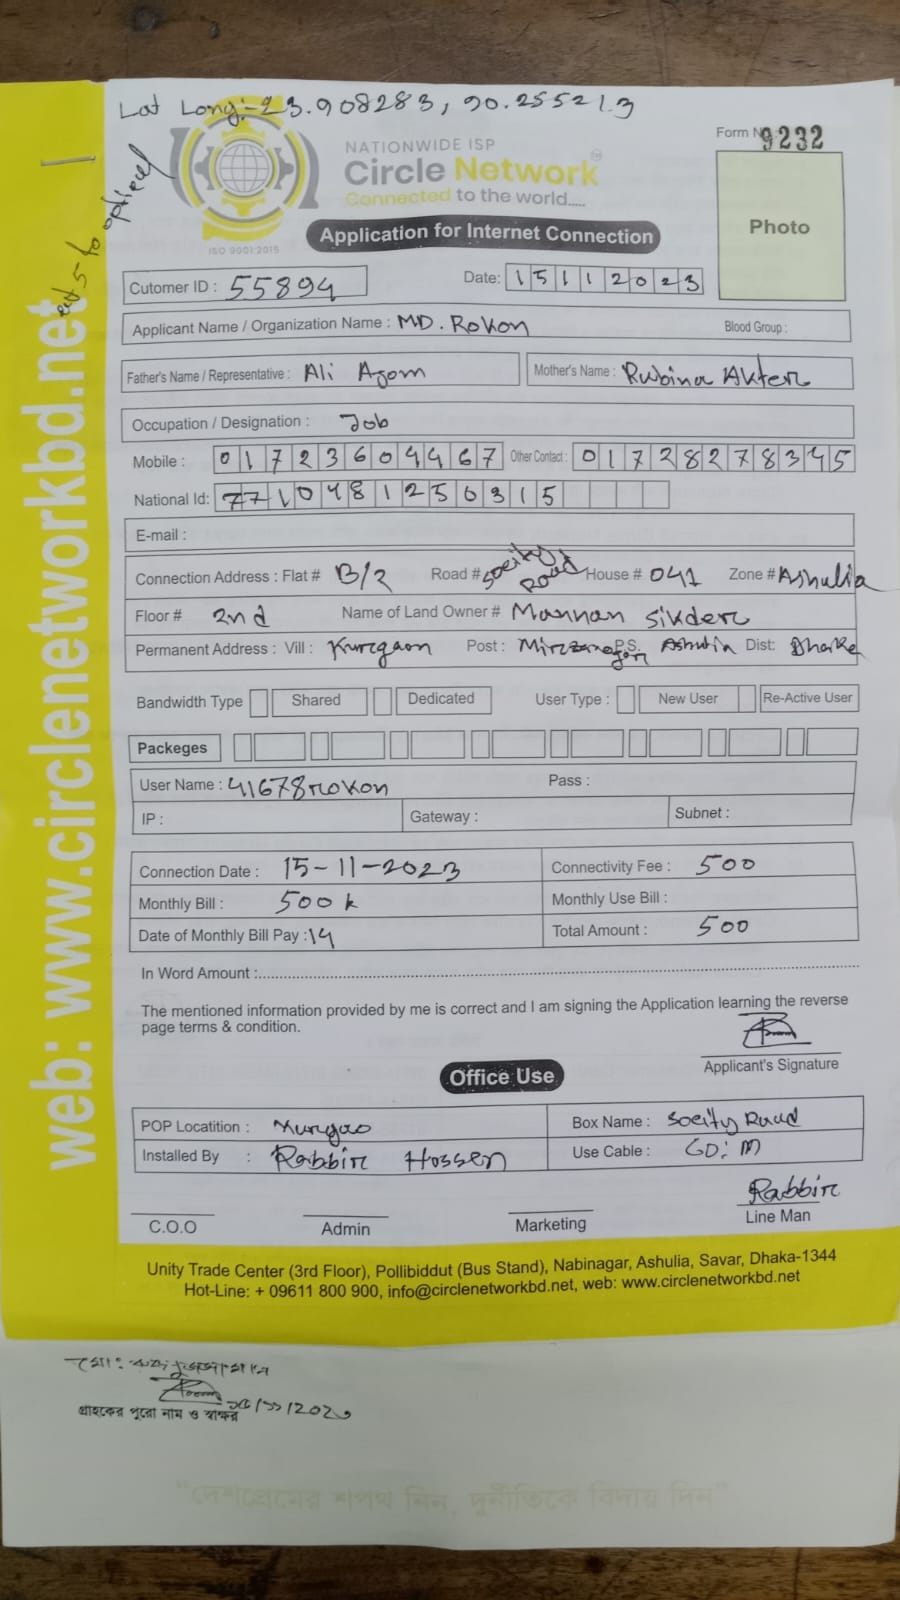 Lat Long:- 23.908283, 90.255213
NATIONWIDE ISP
Form No 9232
Circle Network
Connected to the world.....
ISO 9001:2015
Application for Internet Connection
Photo
cat 5 to optical
web: www.circlenetworkbd.net
Cutomer ID : 55894
Date: 15112023
Applicant Name / Organization Name : MD. Rokon Blood Group :
Father's Name / Representative : Ali Azom Mother's Name : Rubina Akter
Occupation / Designation : Job
Mobile : 01723604467 Other Contact : 01728278345
National Id: 7710481250315
E-mail :
Connection Address : Flat # B/2 Road # Soceity Road House # 041 Zone # Ashulia
Floor # 2nd Name of Land Owner # Mannan Sikder
Permanent Address : Vill : Kurgaon Post : Mirzanagor P.S. Ashulia Dist: Dhaka
Bandwidth Type Shared Dedicated User Type : New User Re-Active User
Packeges
User Name : 41678rokon Pass :
IP : Gateway : Subnet :
Connection Date : 15-11-2023 Connectivity Fee : 500
Monthly Bill : 500 k Monthly Use Bill :
Date of Monthly Bill Pay : 14 Total Amount : 500
In Word Amount :
The mentioned information provided by me is correct and I am signing the Application learning the reverse
page terms & condition.
Applicant's Signature
Office Use
POP Locatition : Kurgao Box Name : Soeity Raud
Installed By : Rabbir Hossen Use Cable : GD: M
Rabbir
C.O.O Admin Marketing Line Man
Unity Trade Center (3rd Floor), Pollibiddut (Bus Stand), Nabinagar, Ashulia, Savar, Dhaka-1344
Hot-Line: + 09611 800 900, info@circlenetworkbd.net, web: www.circlenetworkbd.net
মো:
গ্রাহকের পুরো নাম ও স্বাক্ষর
"দেশপ্রেমের শপথ নিন, দুর্নীতিকে বিদায় দিন"